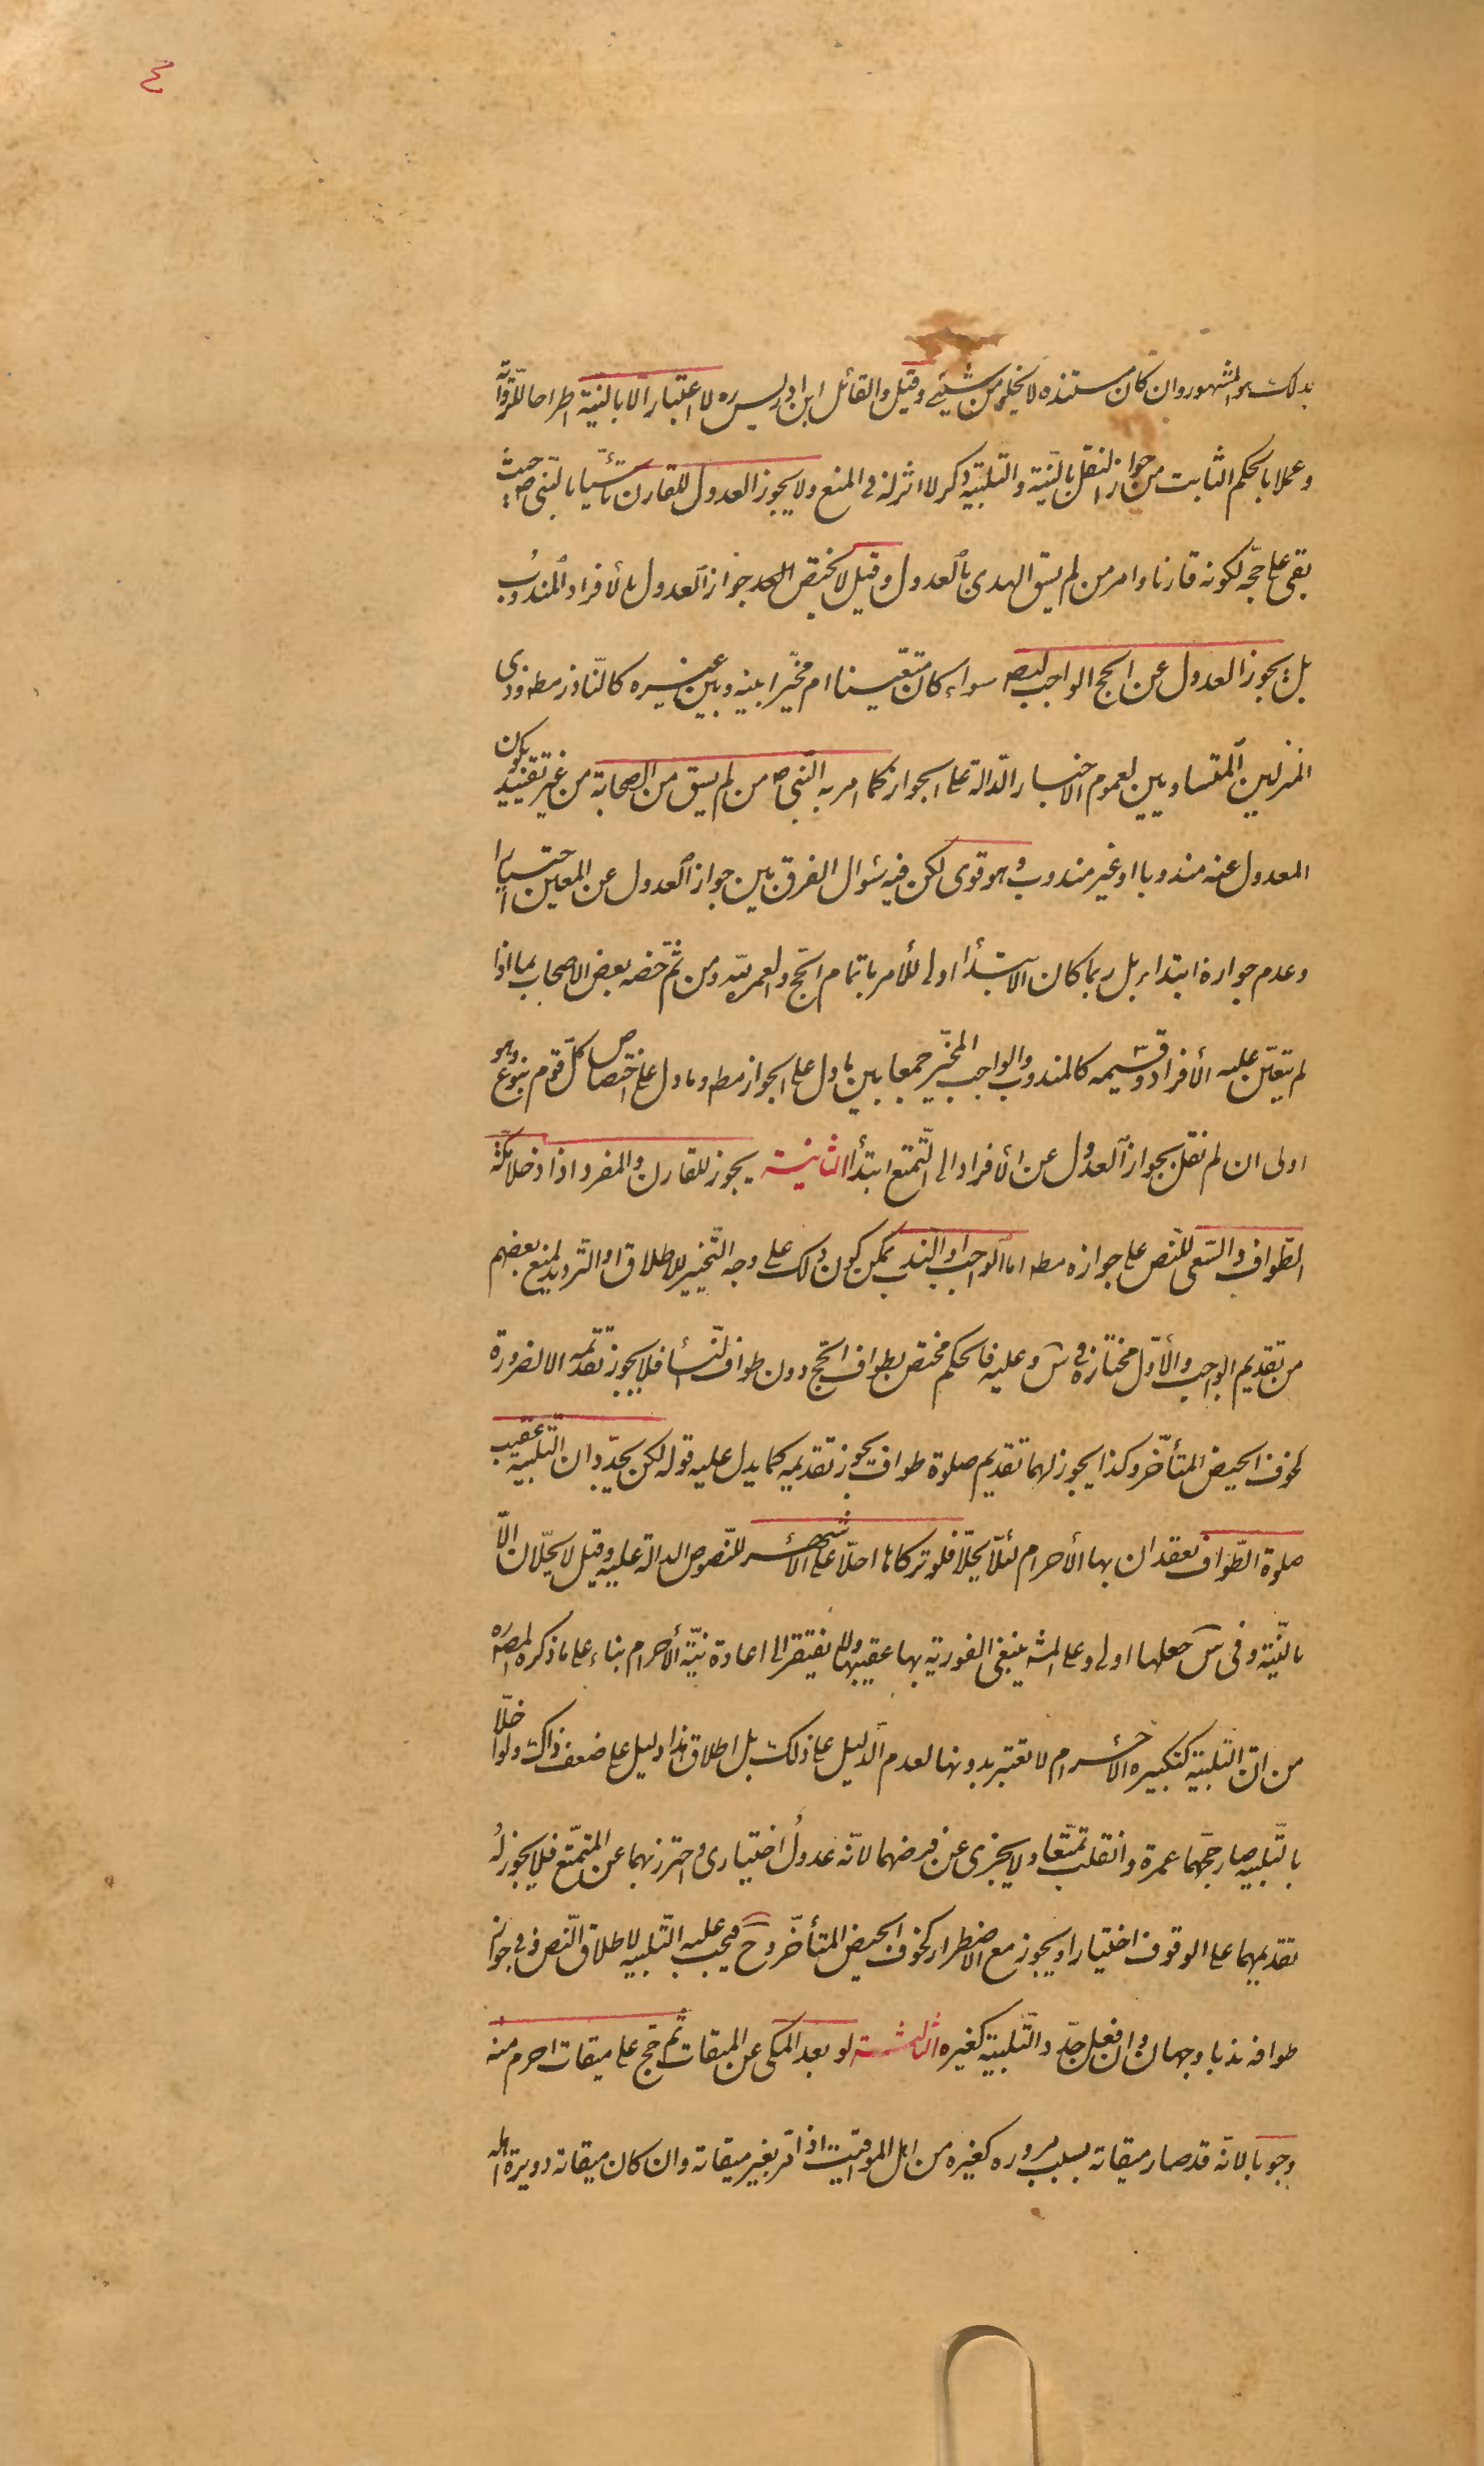 ٤
بذلك هو المشهور وان كان مستنده لا يخلو من شيئ وقيل والقائل ابن ادريس ره لا اعتبار الا بالنيّة اطراحا للرّواية
وعملا بالحكم الثابت من جواز النقل بالنّية والتّلبية ذكر لا اثر له في المنع ولا يجوز العدول للقارن تأسّيا بالنّبى ص حيث
بقى على حجّه لكونه قارنا وامر من لم يسق الهدى بالعدول وقيل لا يختص جواز العدول بالأفراد المندوب
بل يجوز العدول عن الحج الواجب ايض سواء كان متعيّنا ام مخيّرا بينه وبين غيره كالنّاذر مطه وذى
المنزلين المتساويين لعموم الاخبار الدّالة على الجواز كما امر به النّبى ص من لم يسق من الصحابة من غير تقييد بكون
المعدول عنه مندوبا او غير مندوب وهو قوى لكن فيه سؤال الفرق بين جواز العدول عن المعين اختيارا
وعدم جوازه ابتداء بل ربما كان الابتدأ اولى للأمر باتمام الحّج والعمرة لله ومن ثمّ خصّه بعض الاصحاب بما اذا
لم يتعيّن عليه الأفراد وقسيمه كالمندوب والواجب المخيّر جمعا بين ما دل على الجواز مطه وما دل على اختصاص كلّ قوم بنوع وهو
اولى ان لم نقل بجواز العدول عن الأفراد الى التّمتع ابتدأ الثانية يجوز للقارن والمفرد اذا دخلا مكّة
الطّواف والسّعى للنّص على جوازه مطه اما الواجب او النّدب يمكن كون ذلك على وجه التّخيير للاطلاق او الترديد لمنع بعضهم
من تقديم الواجب والأوّل مختاره في س وعليه فالحكم مختص بطواف الحّج دون طواف النّسأ فلا يجوز تقديمه الا لضرورة
كخوف الحيض المتأخّر وكذا يجوز لهما تقديم صلوة طواف يجوز تقديمه كما يدل عليه قوله لكن يجدّدان التّلبية عقيب
صلوة الطّواف يعقدان بها الأحرام لئلّا يحلّا فلو تركاها احلّا على الأشهر للنّصوص الدالة عليه وقيل لا يحلّان الّا
بالنّية وفى س جعلها اولى وعلى المشه ينبغى الفورية بها عقيبها ولا يفتقر الى اعادة نيّة الأحرام بناء على ما ذكره المصه ره
من انّ التلبية كتكبيرة الأحرام لا تعتبر بدونها لعدم الدّليل على ذلك بل اطلاق هذا دليل على ضعف ذاك ولو اخلّا
بالتّلبية صار حجّهما عمرة وانقلب تمتّعا ولا يجزى عن فرضهما لانّه عدول اختيارى واحترز بهما عن المتمتّع فلا يجوز له
تقديمهما على الوقوف اختيارا ويجوز مع الاضطرار كخوف الحيض المتأخّر وح فيجب عليه التّلبيه لاطلاق النّص وفى جواز
طوافه ندبا وجهان وان فعل جدّد التّلبية كغيره الثالثة لو بعد المكى عن الميقات ثّم حّج على ميقات احرم منه
وجوبا لانّه قد صار ميقاته بسبب مروره كغيره من اهل المواقيت اذا مّر بغير ميقاته وان كان ميقاته دويرة اهله